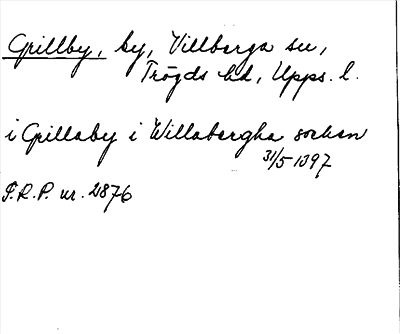 Grillby, by, Villberga sn,
Trögds hd, Upps. l.
i Grillaby i Willabergha sochen
31/5 1397
S.R.P. nr. 2876